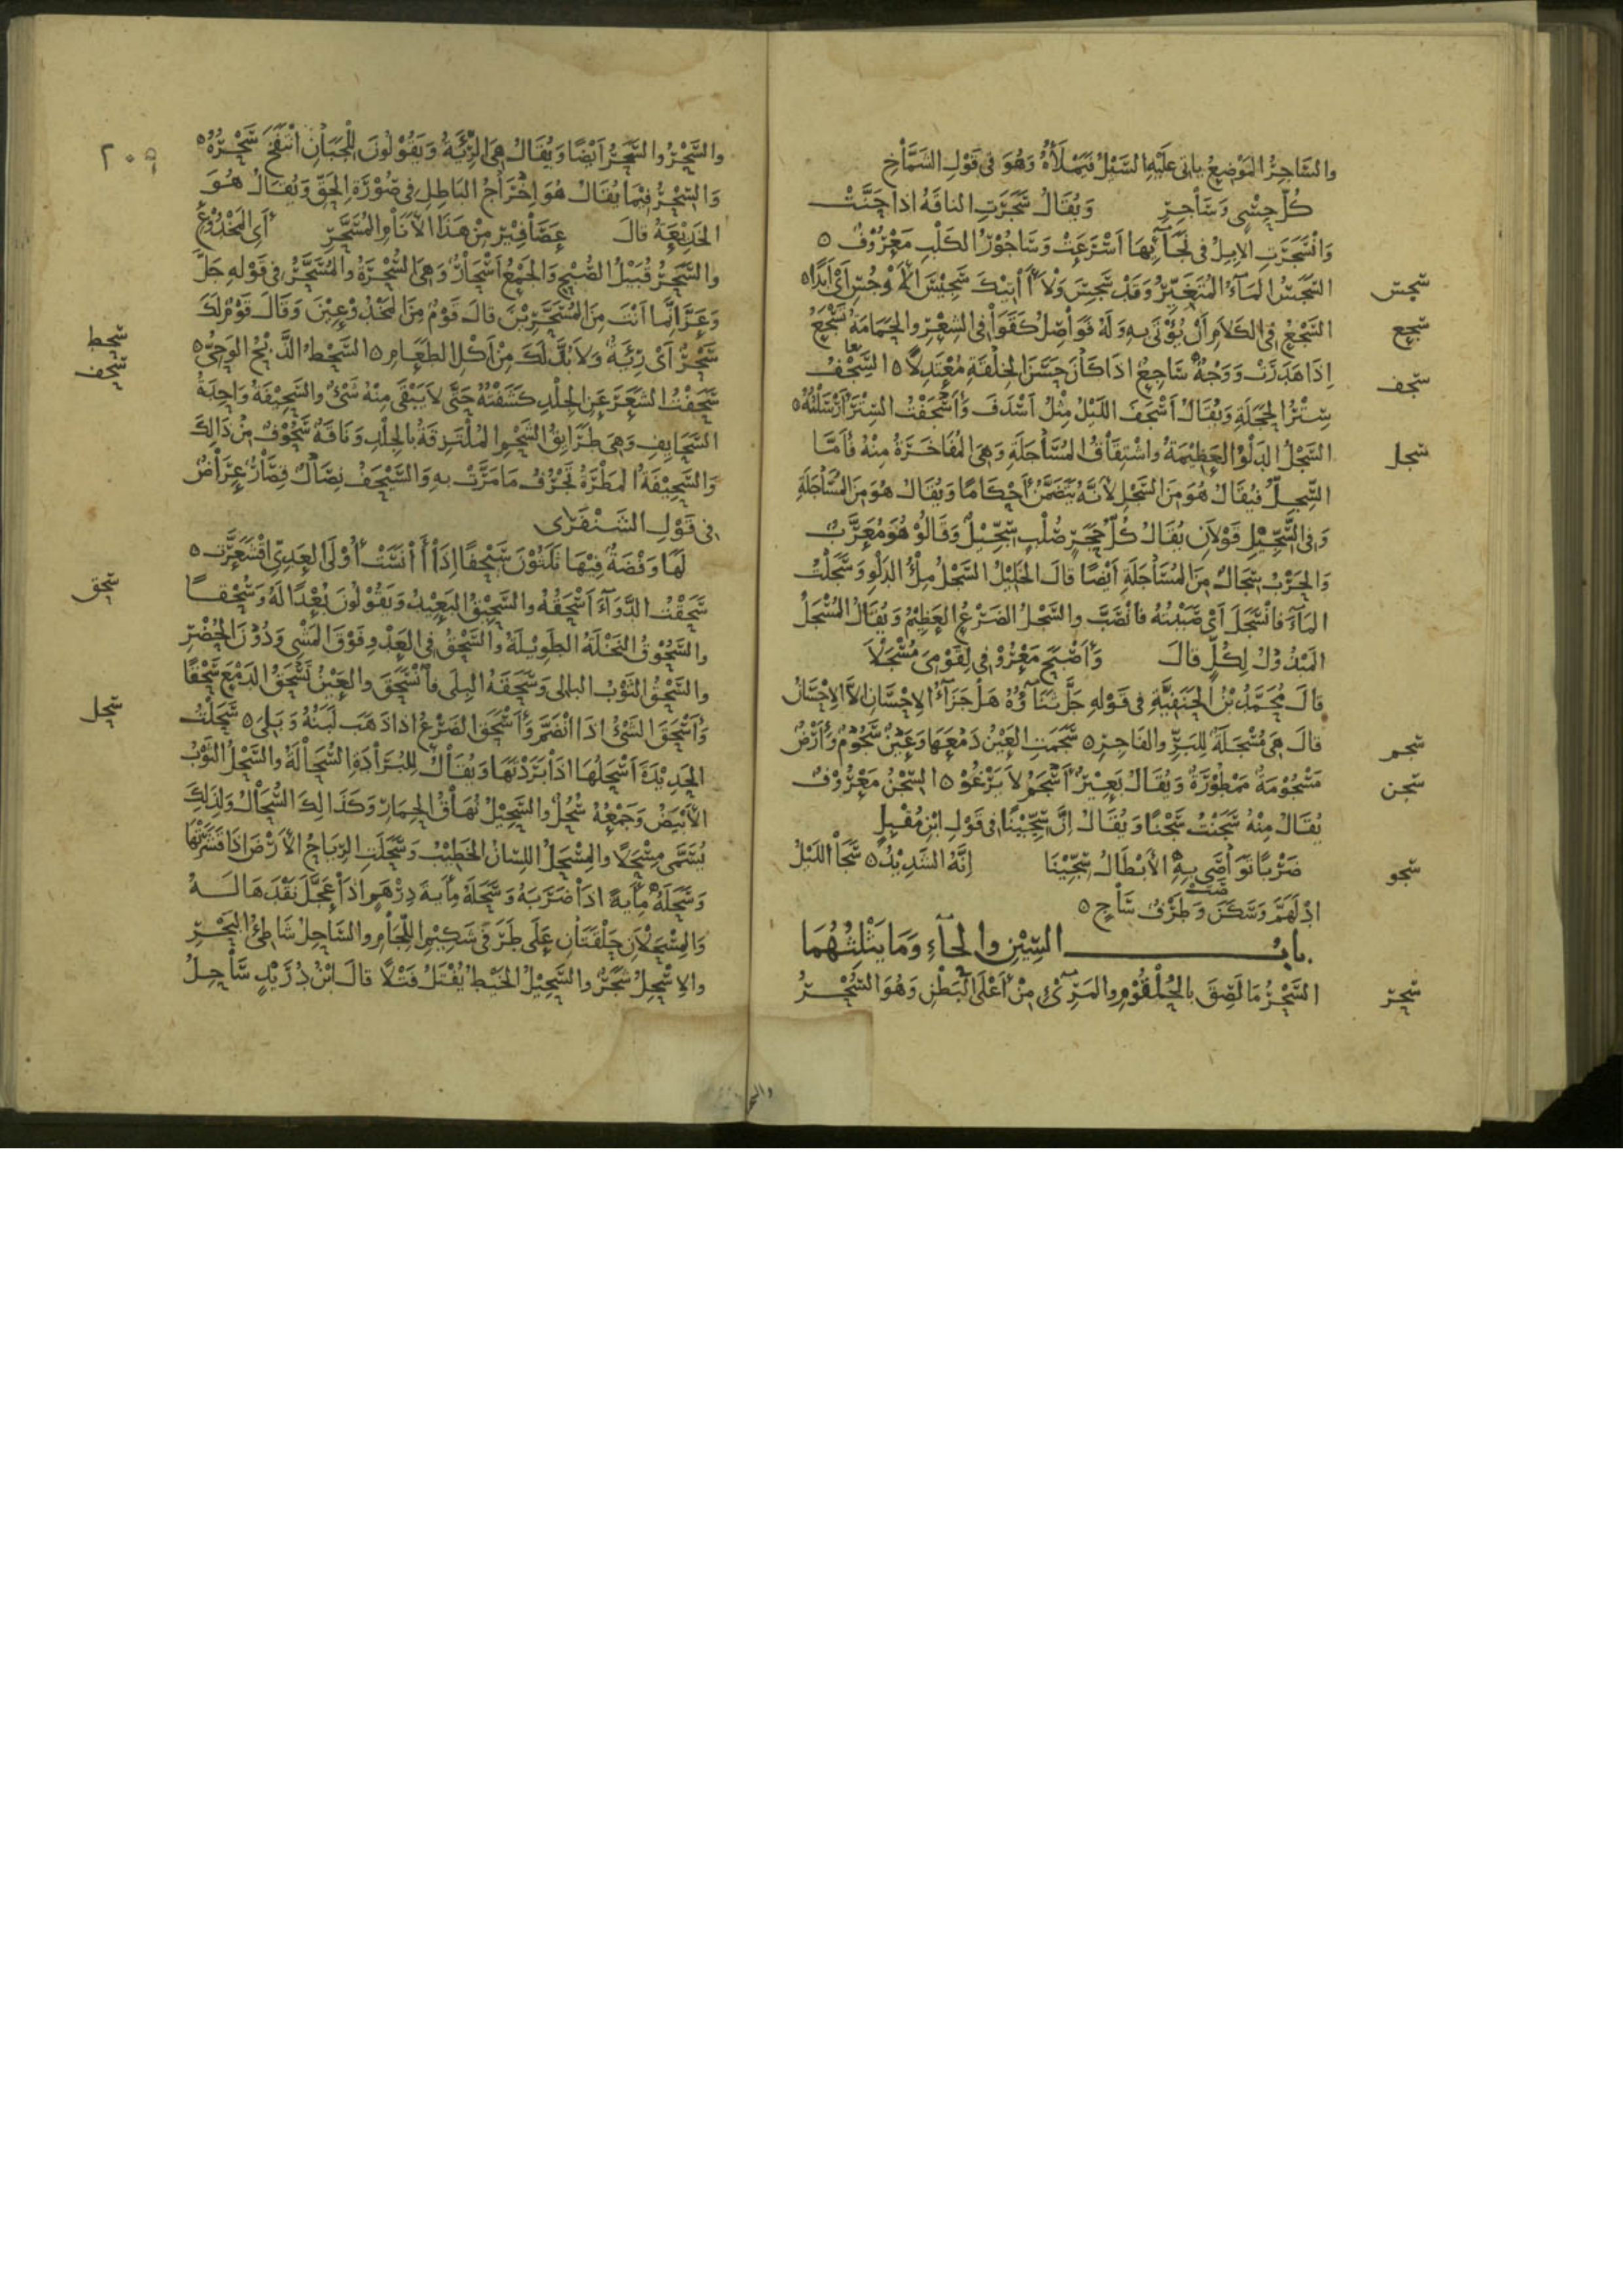 والسَّاجِرُ المَوْضِعُ ياتى عَلَيْهِ السَّيْلُ فَيَمْلَأُهُ وَهُوَ فى قَوْلِ الشَّمَّاخِ
كُلّ حِسْىٍ وَسَاجِرِ وَيُقَالُ سَجَرَتِ الناقَةُ اذا حَنَّتْ
وَانْسَجَرَتِ الاِبِلُ فى نَجَآئِهَا أَسْرَعَتْ وَسَاجُوْرُ الكَلْبِ مَعْرُوْفٌ ٥
سجس السَّجَسُ المَآءُ المُتَغَيِّرُ وَقَدْ سَجِسَ وَلاَ آتِيْكَ سَجِيْسَ الأَوْجُسِ أَىْ أَبَدًا ٥
سجع السَّجْعُ فى الكَلاَمِ أَنْ يُؤْتَى بِهِ وَلَهُ فَوَاصِلُ كَقَوَافى الشِعْرِ والحَمَامَةُ تَسْجَعُ
إذَا هَدَرَتْ وَوَجْهٌ سَاجِعٌ اذَا كَانَ حَسَنَ الخِلْقَةِ مُعْتَدِلاً ٥ السِّجْفُ معا
سجف سِتْرُ الحَجَلَةِ وَيُقَالُ أَسْجَفَ اللَيْلُ مِثْلُ أَسْدَفَ وَأَسْجَفْتُ السِتْرَ أَرْسَلْتُهُ ٥
سجل السَّجْلُ الدَلْوُ العَظِيْمَةُ واشْتِقَاقُ المُسَاجَلَةِ وَهِىَ المُفَاخَرَةُ مِنْهُ فَأَمَّا
السِّجِلُّ فَيُقَالُ هُوَ مِنَ السَّجْلِ لأَنَّهُ يَتَضَمَّنُ أَحْكَامًا وَيُقَالُ هُوَ مِنَ المُسَاجَلَةِ
وَفى السِّجِّيْلِ قَوْلاَنِ يُقَالُ كُلُّ حَجَرٍ صُلْبٍ سِجِّيْلٌ وَقَالُوْ هُوَ مُعَرَّبٌ
وَالحَرْبُ سِجَالٌ مِنَ المُسَاجَلَةِ أَيْضًا قالَ الخَلِيْلُ السَّجْلُ مِلْءُ الدَلْوِ وَسَجَلْتُ
المَآءَ فَانْسَجَلَ أَىْ صَبَبْتُهُ فَانْصَبَّ والسَّجْلُ الضَرْعُ العَظِيْمُ وَيُقَالُ المُسْجَلُ
المَبْذُوْلُ لِكُلٍّ قالَ وَأَصْبَحَ مَعْرُوْفى لِقَوْمِىَ مُسْجَلاَ
قالَ مُحَمَّدُ بْنُ الحَنَفِيَّةِ فى قَوْلِهِ جَلَّ ثَنَآؤُهُ هَلْ جَزَآءُ الاِحْسَانِ اِلاَّ الاِحْسَانُ
سجم قالَ هِىَ مُسْجَلَةٌ لِلبَرِّ والفَاجِرِ ٥ سَجَمَتِ العَيْنُ دَمْعَهَا وَعَيْنٌ سَجُوْمٌ وَأَرْضٌ
سجن مَسْجُوْمَةٌ مَمْطُوْرَةٌ وَيُقَالُ بَعِيْرٌ أَسْجَمُ لاَ يَرْغُوْ ٥ السِّجْنُ مَعْرُوْفٌ
يُقَالُ مِنْهُ سَجَنْتُ سَجْنًا وَيُقَالُ اِنَّ سِجِّيْنًا فى قَوْلِ ابْنِ مُقْبِلٍ
سجو ضَرْبًا تَوَاصَى بِهِ الأَبْطَالُ سِجِّيْنَا اِنَّهُ الشَدِيْدُ ٥ سَجَا اللَيْلُ
اِدْلَهَمَّ وَسَكَنَ وَطَرْفٌ سَاجٍ ٥
بابُ السِّيْنِ والحَآءِ وَمَا يَثْلِثُهُمَا
سحر السَّحْرُ مَا لَصِقَ بِالحُلْقُوْمِ والمَرِىْءِ مِنْ أَعْلَى البَطْنِ وَهُوَ السُّحْرُ
٢٠٩
والسَّحْرُ والسَّحَرُ أَيْضًا وَيُقَالُ هِىَ الرِّئَةُ وَيَقُوْلُونَ لِلْجَبَانِ انْتَفَخَ سَحْرُهُ ٥
وَالسِّحْرُ فِيْمَا يُقَالُ هُوَ اِخْرَاجُ البَاطِلِ فى صُوْرَةِ الحَقِّ وَيُقَالُ هُوَ
الخَدِيْعَةُ قالَ عَصَافِيْرٌ مِنْ هَذَا الأَنَامِ المُسَحَّرِ أَى المَخْدُوْعِ
والسَّحَرُ قُبَيْلَ الصُّبْحِ وَالجَمْعُ أَسْحَارٌ وَهِىَ السُّحْرَةُ والمُسَحَّرُ فى قَوْلِهِ جَلَّ
وَعَزَّ اِنَّمَا أَنْتَ مِنَ المُسَحَّرِيْنَ قالَ قَوْمٌ مِنَ المَخْدُوْعِيْنَ وَقَالَ قَوْمٌ لَكَ
سحط سَحْرٌ أَىْ رِئَةٌ وَلاَ بُدَّ لَكَ مِنْ أَكْلِ الطَعَامِ ٥ السَّحْطُ الذَّبْحُ الوَحِىُّ ٥
سحف سَحَفْتُ الشَعَرَ عَنِ الجِلْدِ كَشَفْتُهُ حَتَّى لاَ يَبْقَى مِنْهُ شَىْءٌ والسَّحِيْفَةُ وَاحِدَةُ
السَّحَايِفِ وَهِىَ طَرَايِقُ الشَحْمِ المُلْتَزِقَةُ بِالجِلْدِ وَنَاقَةٌ سَحُوْفٌ مِنْ ذَالِكَ
وَالسَّحِيْفَةُ المَطْرَةُ تَجْرُفُ مَا مَرَّتْ بِهِ وَالسَّيْحَفُ نِصَالٌ قِصَارٌ عِرَاضٌ
فى قَوْلِ الشَنْفَرَى
لَهَا وَفْضَةٌ فِيْهَا ثَلَثُوْنَ سَيْحَفًا اِذَا آنَسَتْ أُوْلَى العَدِىِّ اقْشَعَرَّتِ ٥
سحق سَحَقْتُ الدَّوَآءَ أَسْحَقُهُ والسَّحِيْقُ البَعِيْدُ وَيَقُوْلُونَ بُعْدًا لَهُ وَسُحْقًا
والسَّحُوْقُ النَخْلَةُ الطَوِيْلَةُ والسَّحْقُ فى العَدْوِ فَوْقَ المَشْىِ وَدُوْنَ الحُضْرِ
والسَّحْقُ الثَوْبُ البالى وَسَحَقَهُ البِلَى فَانْسَحَقَ والعَيْنُ تَسْحَقُ الدَمْعَ سَحْقًا
سحل وَأَسْحَقَ الشَىْءُ اذَا انْضَمَّ وَأَسْحَقَ الضَرْعُ اذا ذَهَبَ لَبَنُهُ وَبَلِىَ ٥ سَحَلْتُ
الحَدِيْدَةَ أَسْحَلُهَا اذَا بَرَدْتَهَا وَيُقَالُ لِلبُرَادَةِ السُّحَالَةُ والسَّحْلُ الثَوْبُ
الأَبْيَضُ وَجَمْعُهُ سُحُلٌ والسَّحِيْلُ نُهَاقُ الحِمَارِ وَكَذَالِكَ السُّحَالُ وَلِذَلِكَ
يُسَمَّى مِسْحَلاً والمِسْحَلُ اللِسَانُ الخَطِيْبُ وَسَحَلَتِ الرِيَاحُ الأَرْضَ اذَا قَشَرَتْهَا
وَسَحَلَهُ مِأَيَةً اذَا ضَرَبَهُ وَسَحَلَهُ مِأَيَةَ دِرْهَمٍ اذَا عَجَّلَ نَقْدَهَا لَهُ
وَالمِسْحَلاَنِ حَلْقَتَانِ عَلَى طَرَفَىْ شَكِيْمِ اللِّجَامِ والسَّاحِلُ شَاطِئُ البَحْرِ
والاِسْحِلُ شَجَرٌ والسَّحِيْلُ الخَيْطُ يُفْتَلُ فَتْلاً قالَ ابْنُ دُرَيْدٍ سَاحِلُ